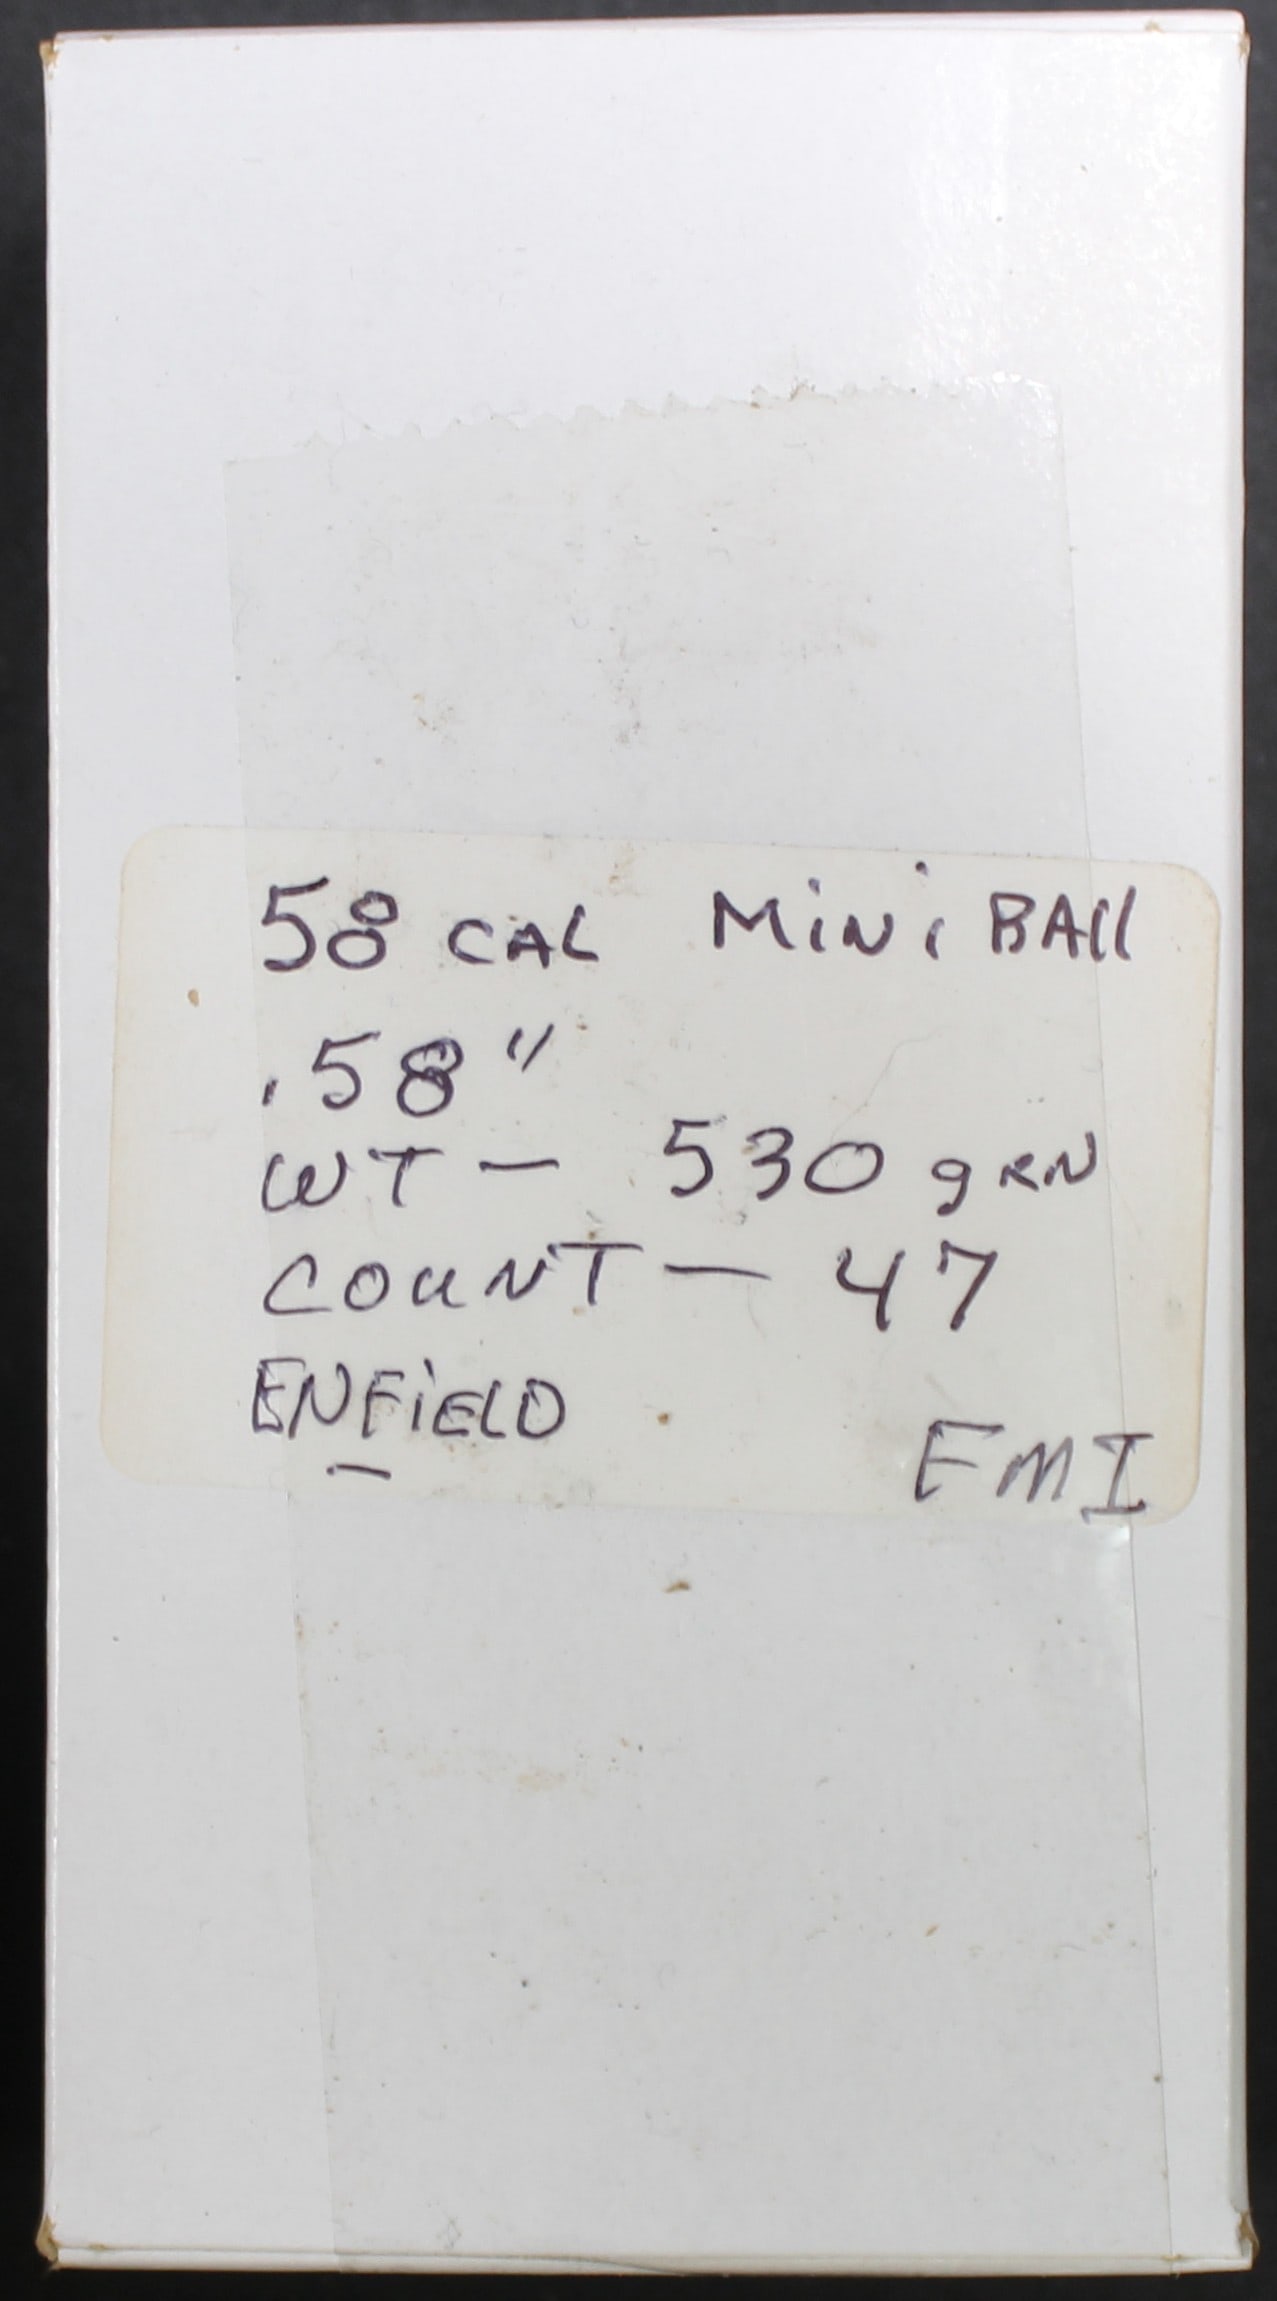 58 CAL MiNi BAll
.58"
WT - 530 gRN
COUNT - 47
ENFiELD
FMI